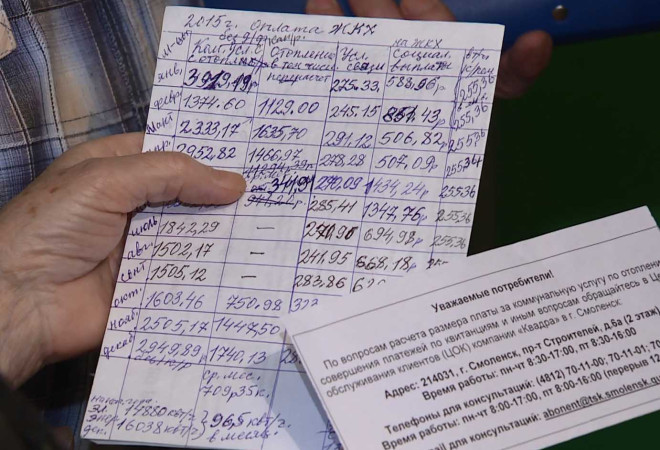 2015г. Оплата ЖКХ
без эл.энер.
Ком. усл. с отоплен. Отопление в том числе перерасчёт Усл. связи на ЖКХ Социал. выплаты
янв. 3919,19р 275.33 588,96р 255,36
февр 1374.60 1129.00 245.15 851.43р 255,36
март 2333,17 1635,70 291,12 506,82р 255,36
2952,82 1466,97 278.28 507,09р 255.34
341,91 270,09 1434,24р 255.36
285,41 1347,76р 255,36
июль 1842,29 — 694,98р 255,36
авг. 1502,17 — 241,95 668,18р
сент 1505,12 — 283,86
окт. 1603,46 750,98
нояб. 2505,17 1447,50
декаб. 2949,89р 1740,13
ср. мес.
709р35к.
эл. 14880квт/г.
энер. 96,5квт/г.
дек. 16038квт/г. в месяц
Уважаемые потребители!
По вопросам расчета размера платы за коммунальную услугу по отоплен
совершения платежей по квитанциям и иным вопросам обращайтесь в Ц
обслуживания клиентов (ЦОК) компании «Квадра» в г. Смоленск:
Адрес: 214031, г. Смоленск, пр-т Строителей, д.6а (2 этаж)
Время работы: пн-чт 8:30-17:00, пт 8:30-16:00
Телефоны для консультаций: (4812) 70-11-00; 70-11-01; 70
Время работы: пн-чт 8:00-17:00, пт 8:00-16:00 (перерыв 12
mail для консультаций: abonent@tsk.smolensk.qu